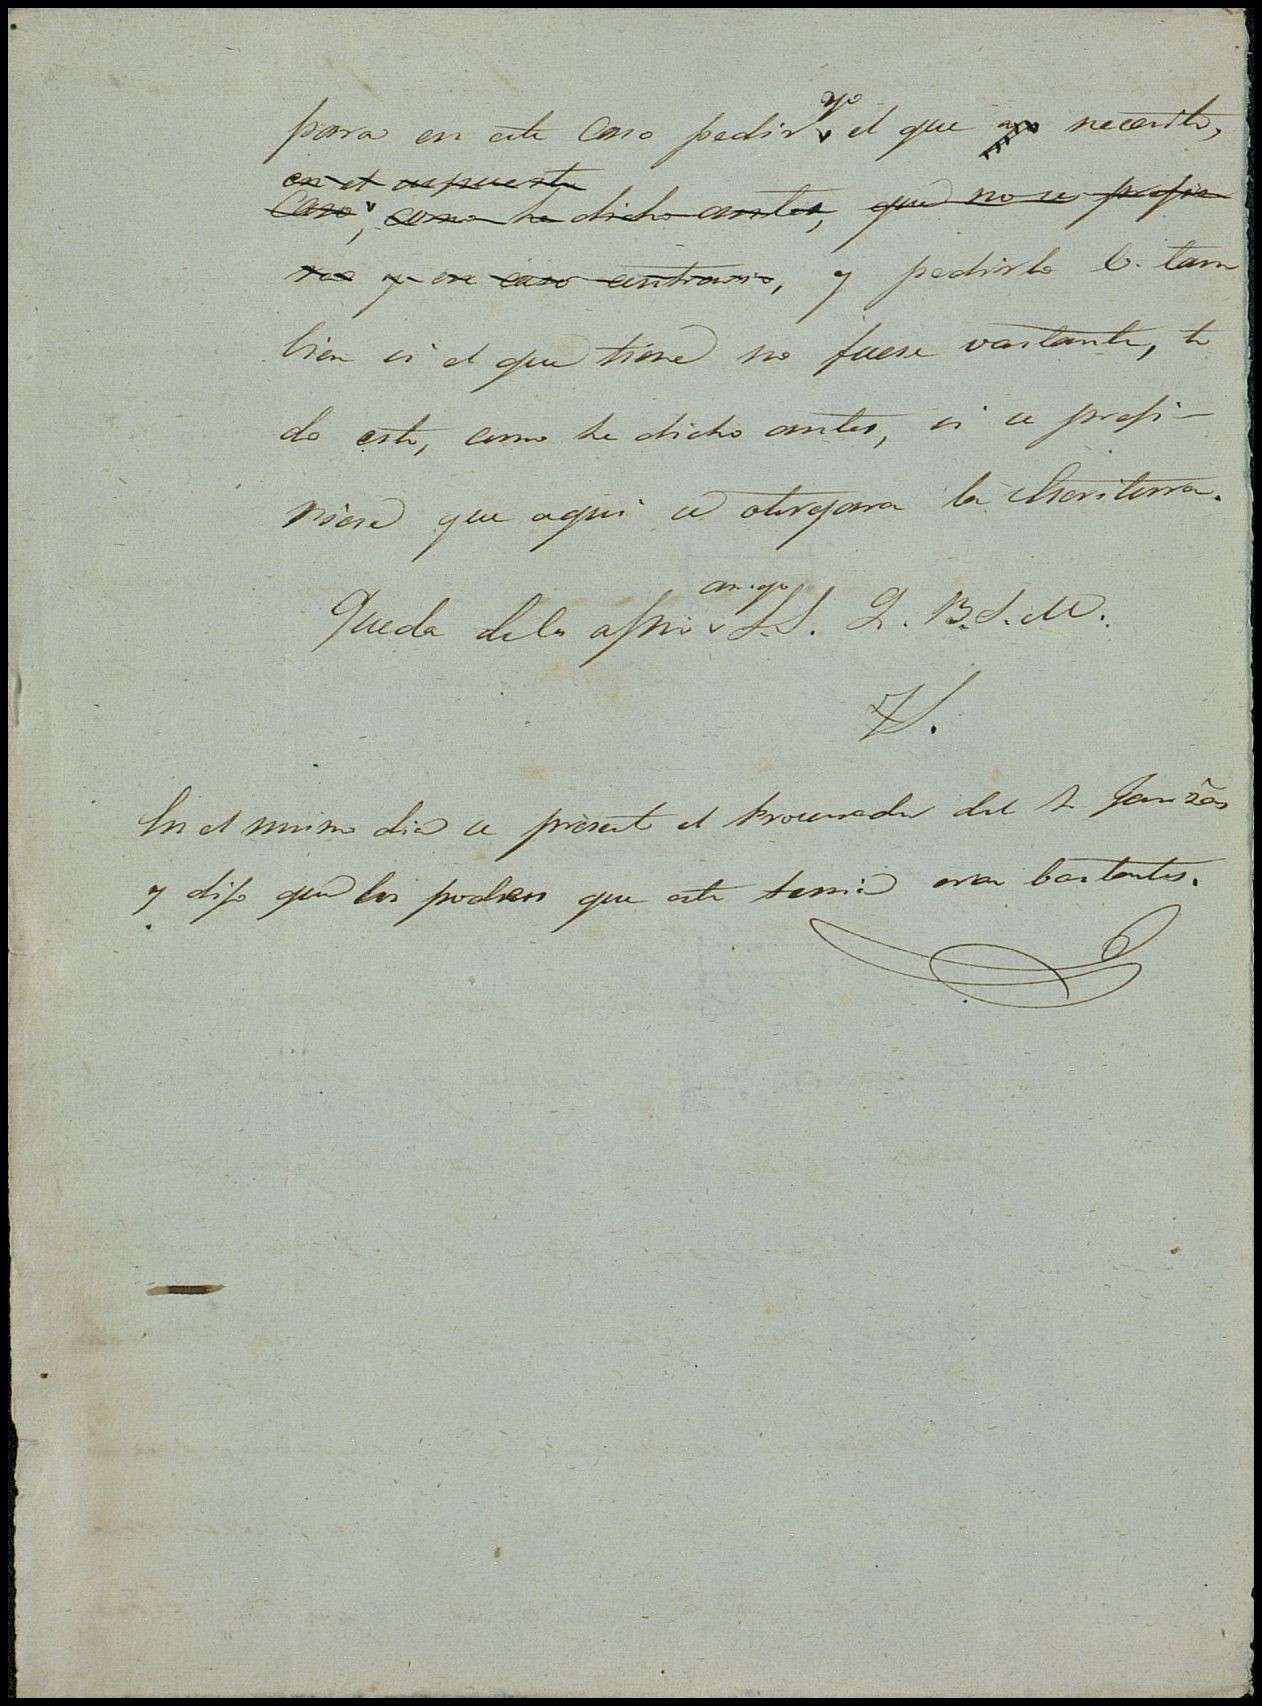 para en este caso pedir yo el que necesito,
en el supuesto
caso, como he dicho antes, que no se prefi
y en caso contrario, y pedirlo V. tam
bien si el que tiene no fuese vastante, to
do esto, como he dicho antes, si se prefi-
niese que aqui se otorgara la Escritura.
Queda de V. affmo amigo S.S. Q.B.S.M.
En el mismo dia se presentó el Procurador del Sr
y dijo que los poderes que este tenia eran bastantes.